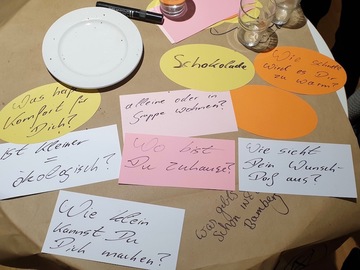 Schokolade
Wie schnell
wird es Dir
zu warm?
Was heißt
Komfort für
Dich?
alleine oder in
Gruppe wohnen?
Ist kleiner
=
ökologisch?
Wo bist
Du zuhause?
Wie sieht
Dein Wunsch-
Dorf aus?
Wie klein
kannst Du
Dich machen?
was gibts
schon in
Bamberg